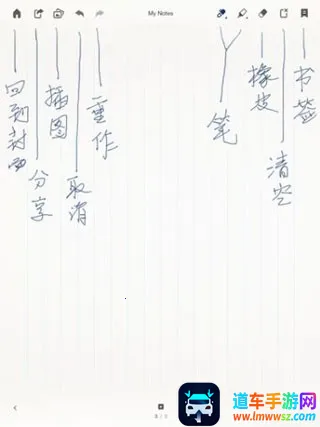 My Notes
回到封面
分享
插图
取消
重作
笔
橡皮
清空
书签
道车手游网
www.lmwwsz.com